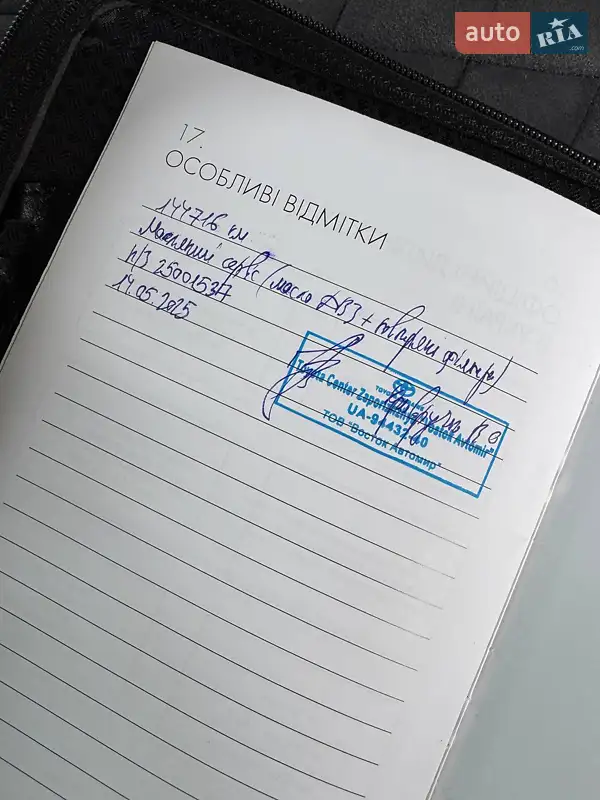 auto RIA .com
17.
ОСОБЛИВІ ВІДМІТКИ
144716 км.
Масляний сервіс (масло ДВЗ + повітряні фільтри)
н/з 25001537
14.05.2025
TOYOTA
Toyota Center Zaporizhzhia "Vostok Avtomir"
UA-94432-40
ТОВ "Восток Автомир"